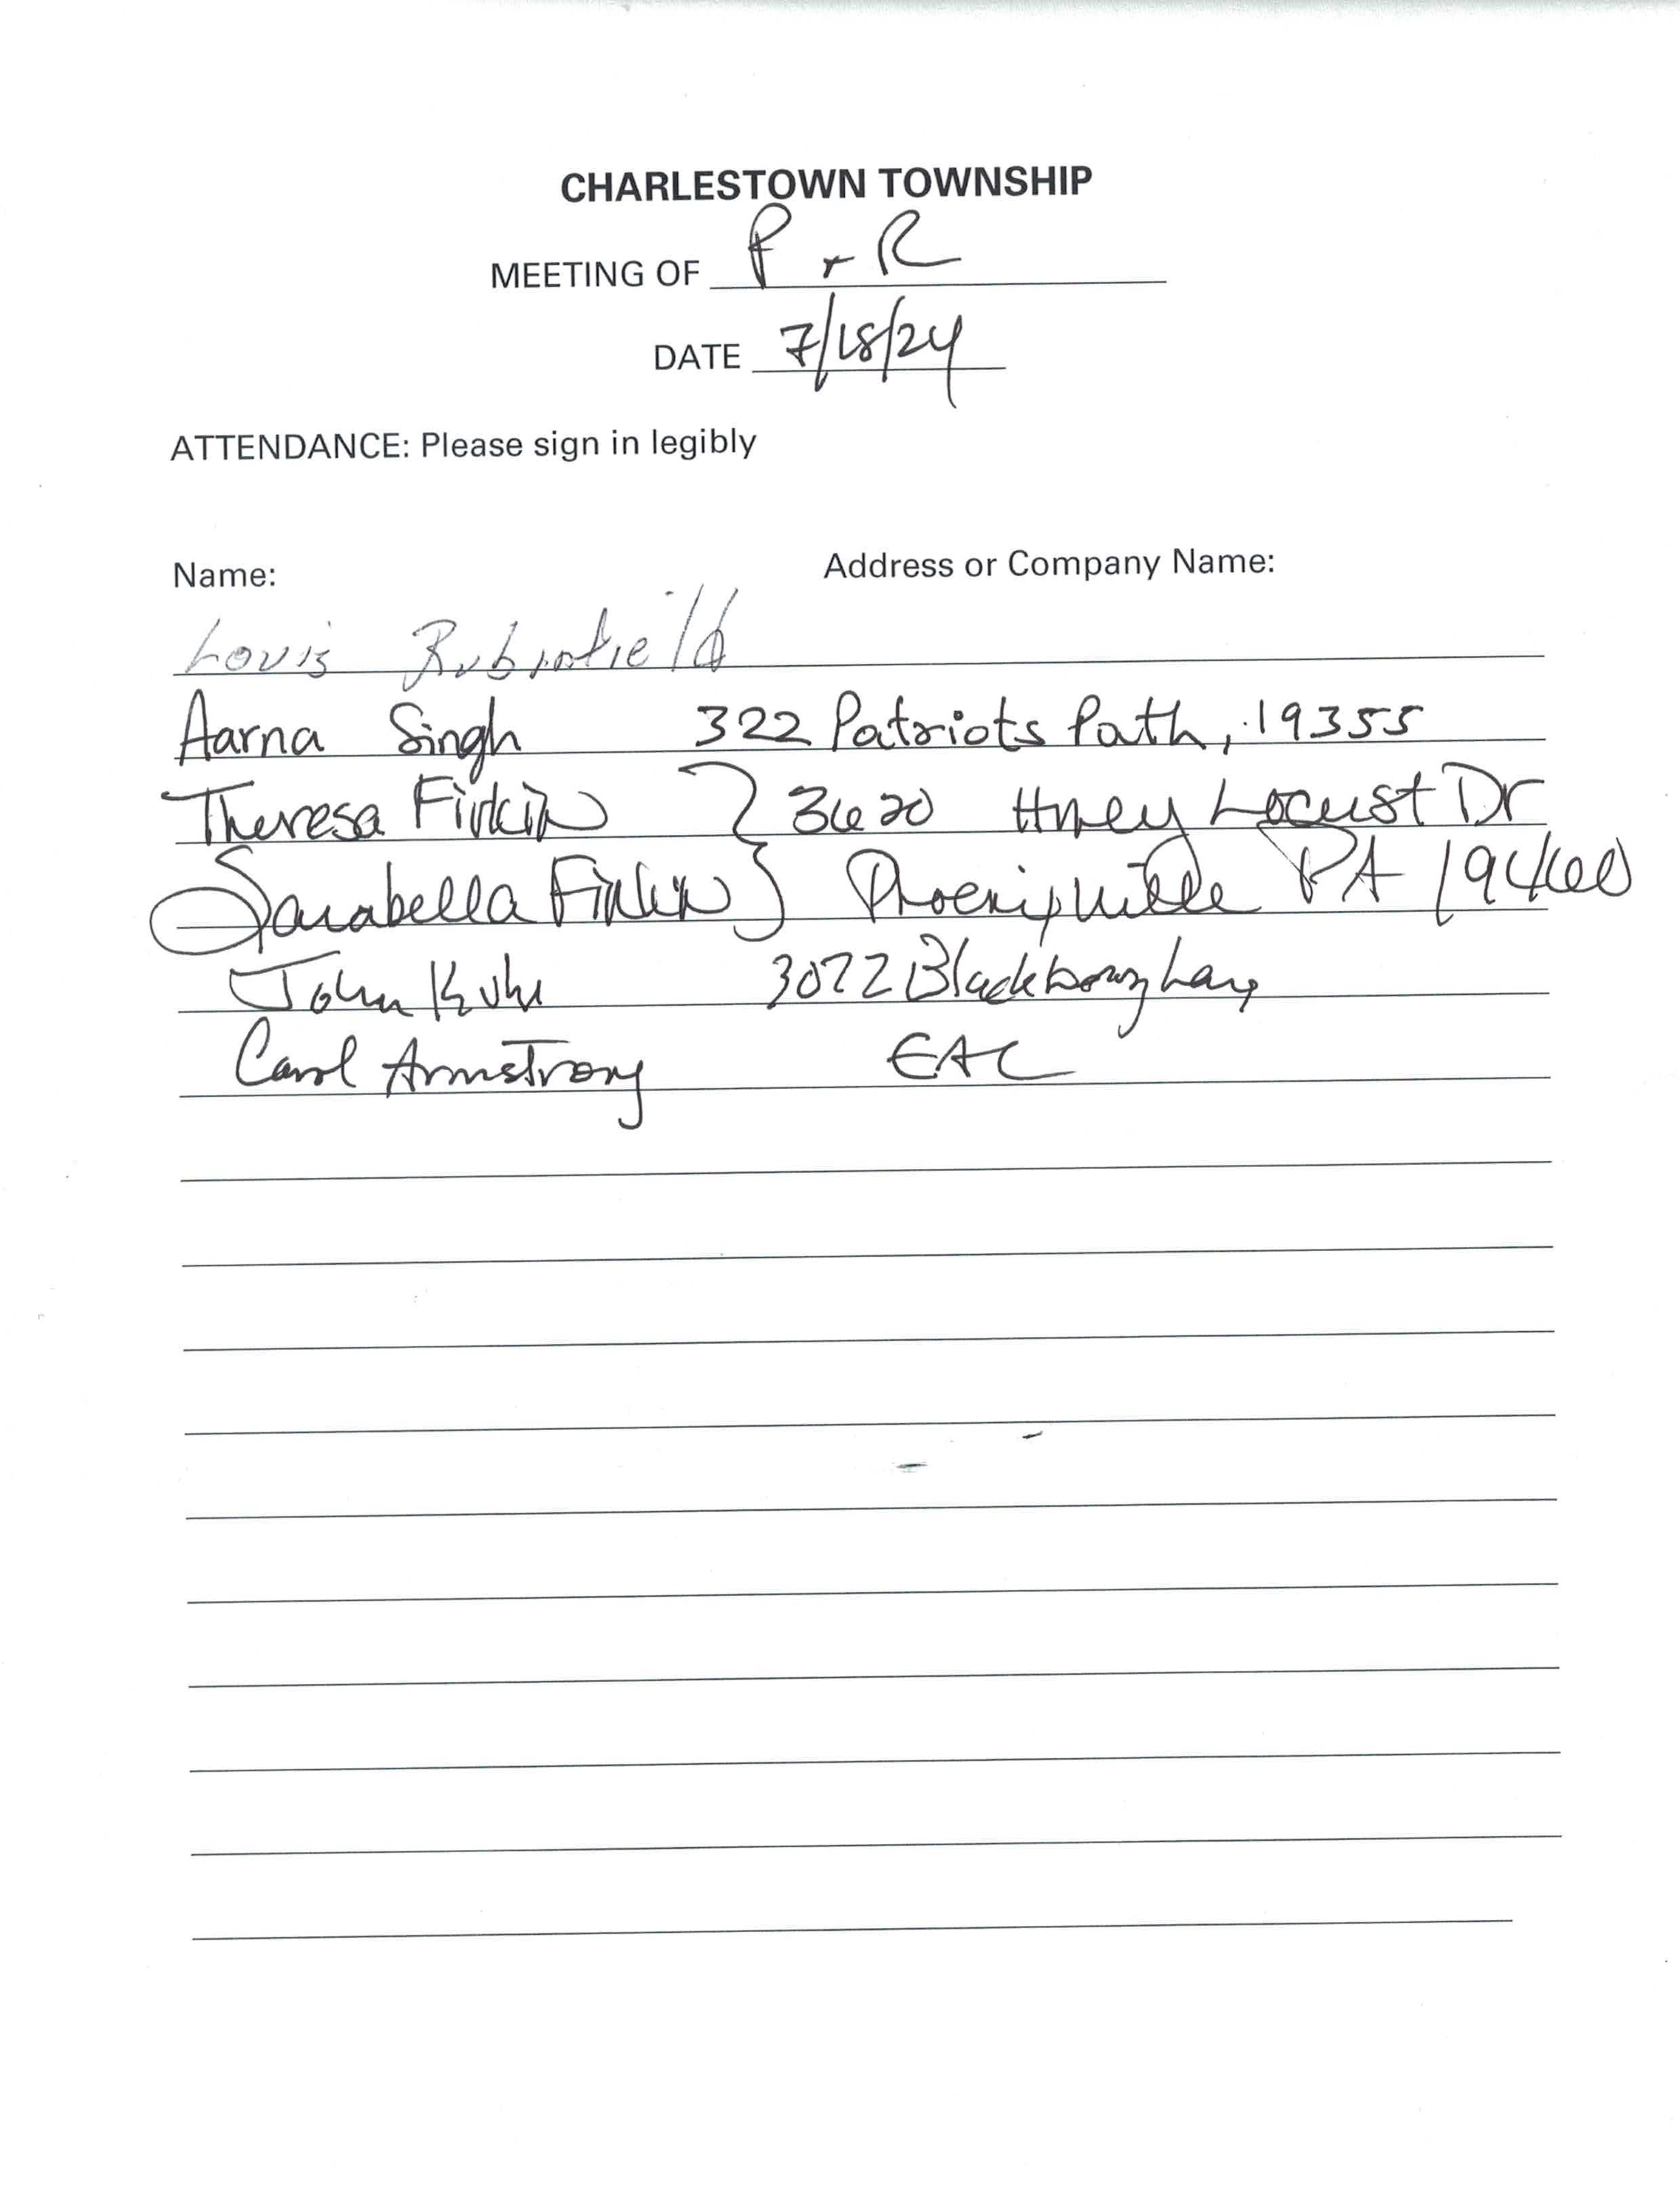 CHARLESTOWN TOWNSHIP
MEETING OF P + R
DATE 7/18/24
ATTENDANCE: Please sign in legibly
Name: Address or Company Name:
Louis Rubinfield
Aarna Singh 322 Patriots Path, 19355
Theresa Firkin } 3620 Honey Locust Dr
Sarabella Firkin } Phoenixville PA 19460
John Kuhn 3022 Lane
Carol Armstrong EAC